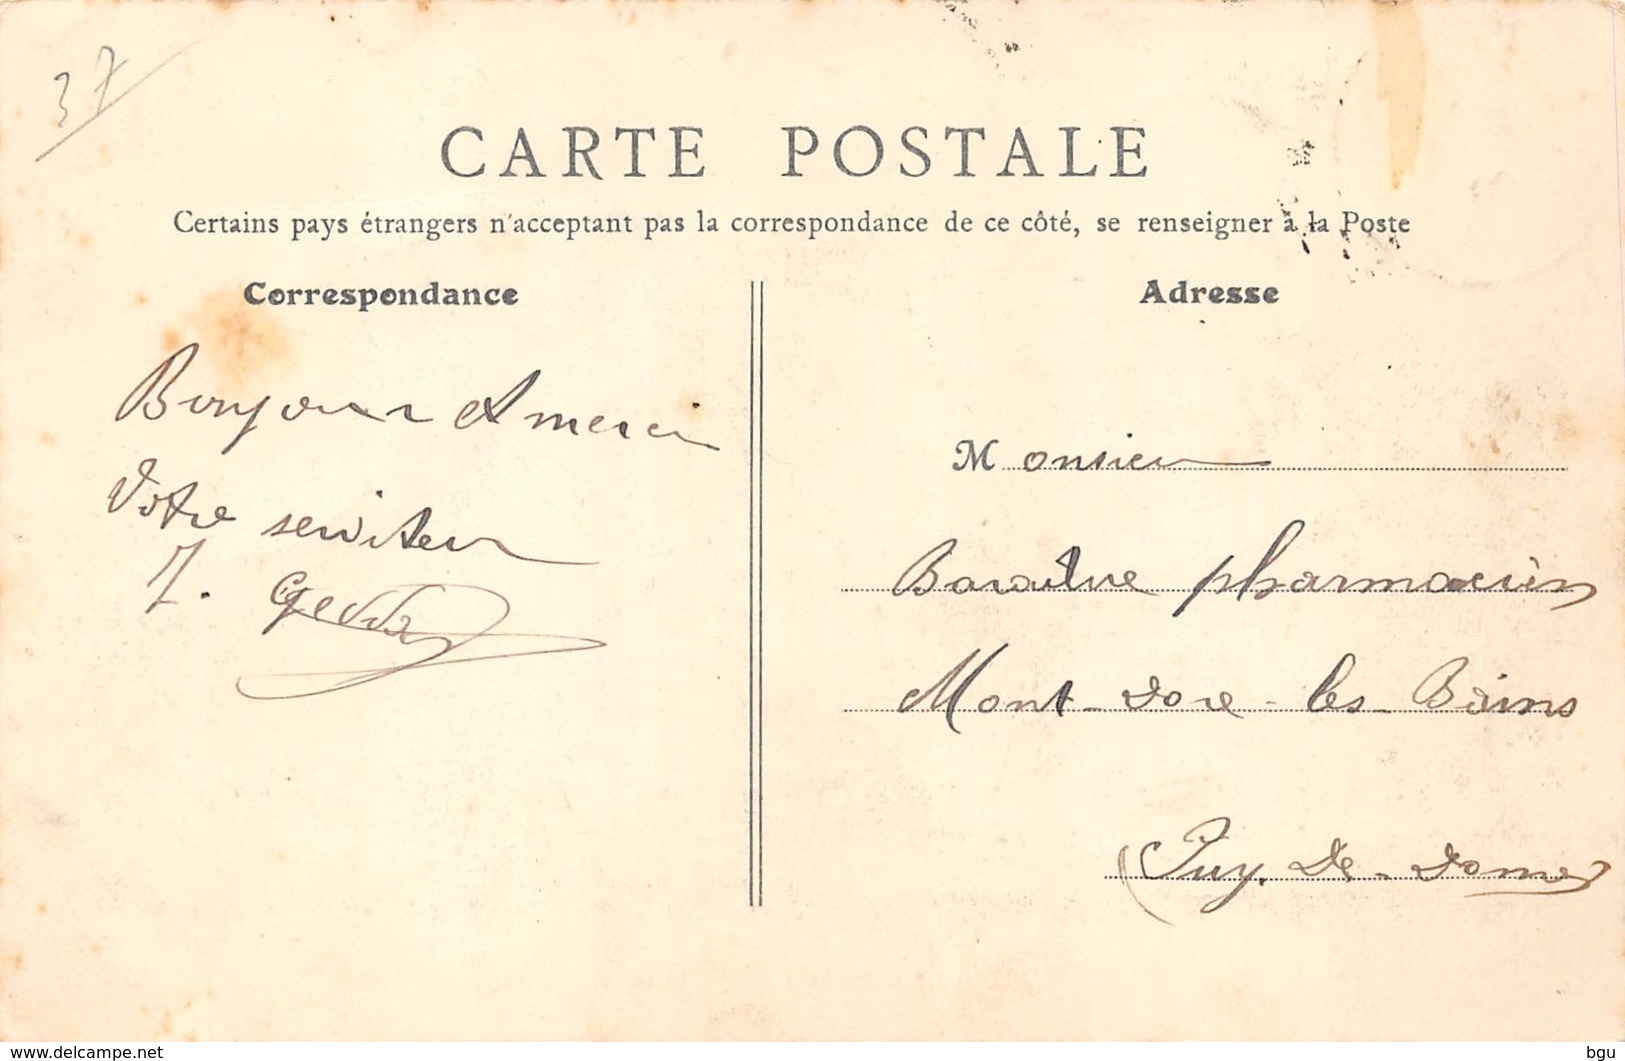 37
CARTE POSTALE
Certains pays étrangers n'acceptant pas la correspondance de ce côté, se renseigner à la Poste
Correspondance
Adresse
Bonjour & merci
Votre serviteur
J.
Monsieur
pharmacien
Mont-Dore-les-Bains
(Puy-de-Dome)
www.delcampe.net
bgu